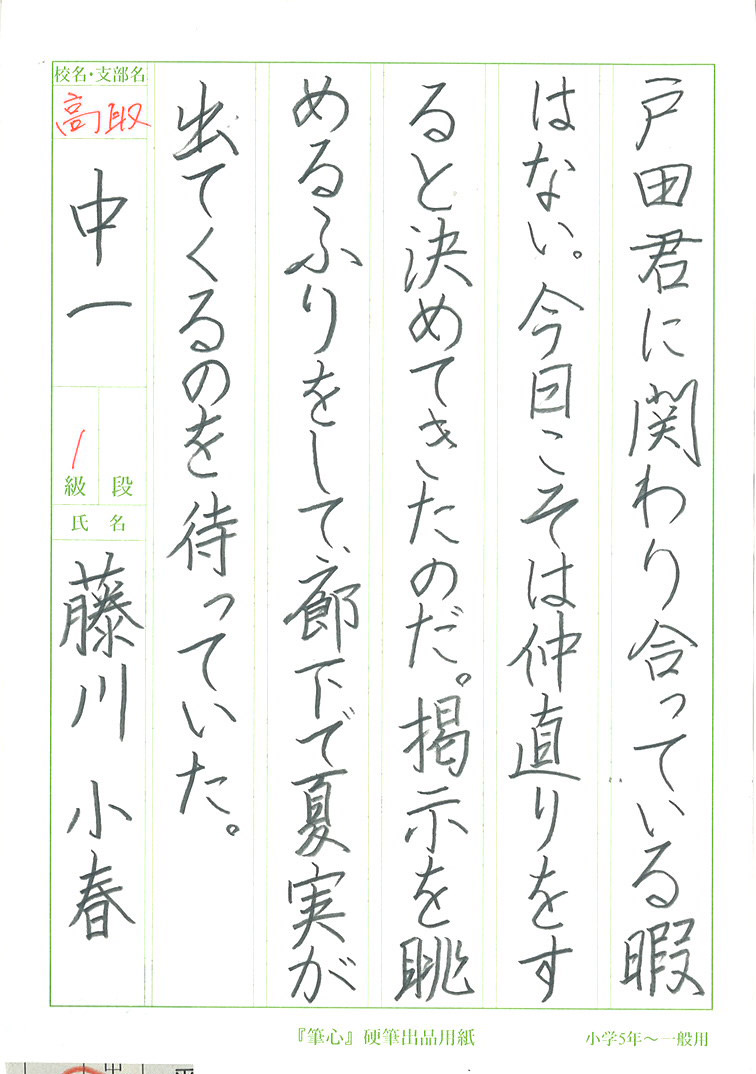 戸田君に関わり合っている暇
はない。今日こそは仲直りをす
ると決めてきたのだ。掲示を眺
めるふりをして、廊下で夏実が
出てくるのを待っていた。
校名・支部名
高取
中一
1
級
段
氏名
藤川 小春
『筆心』硬筆出品用紙
小学5年～一般用